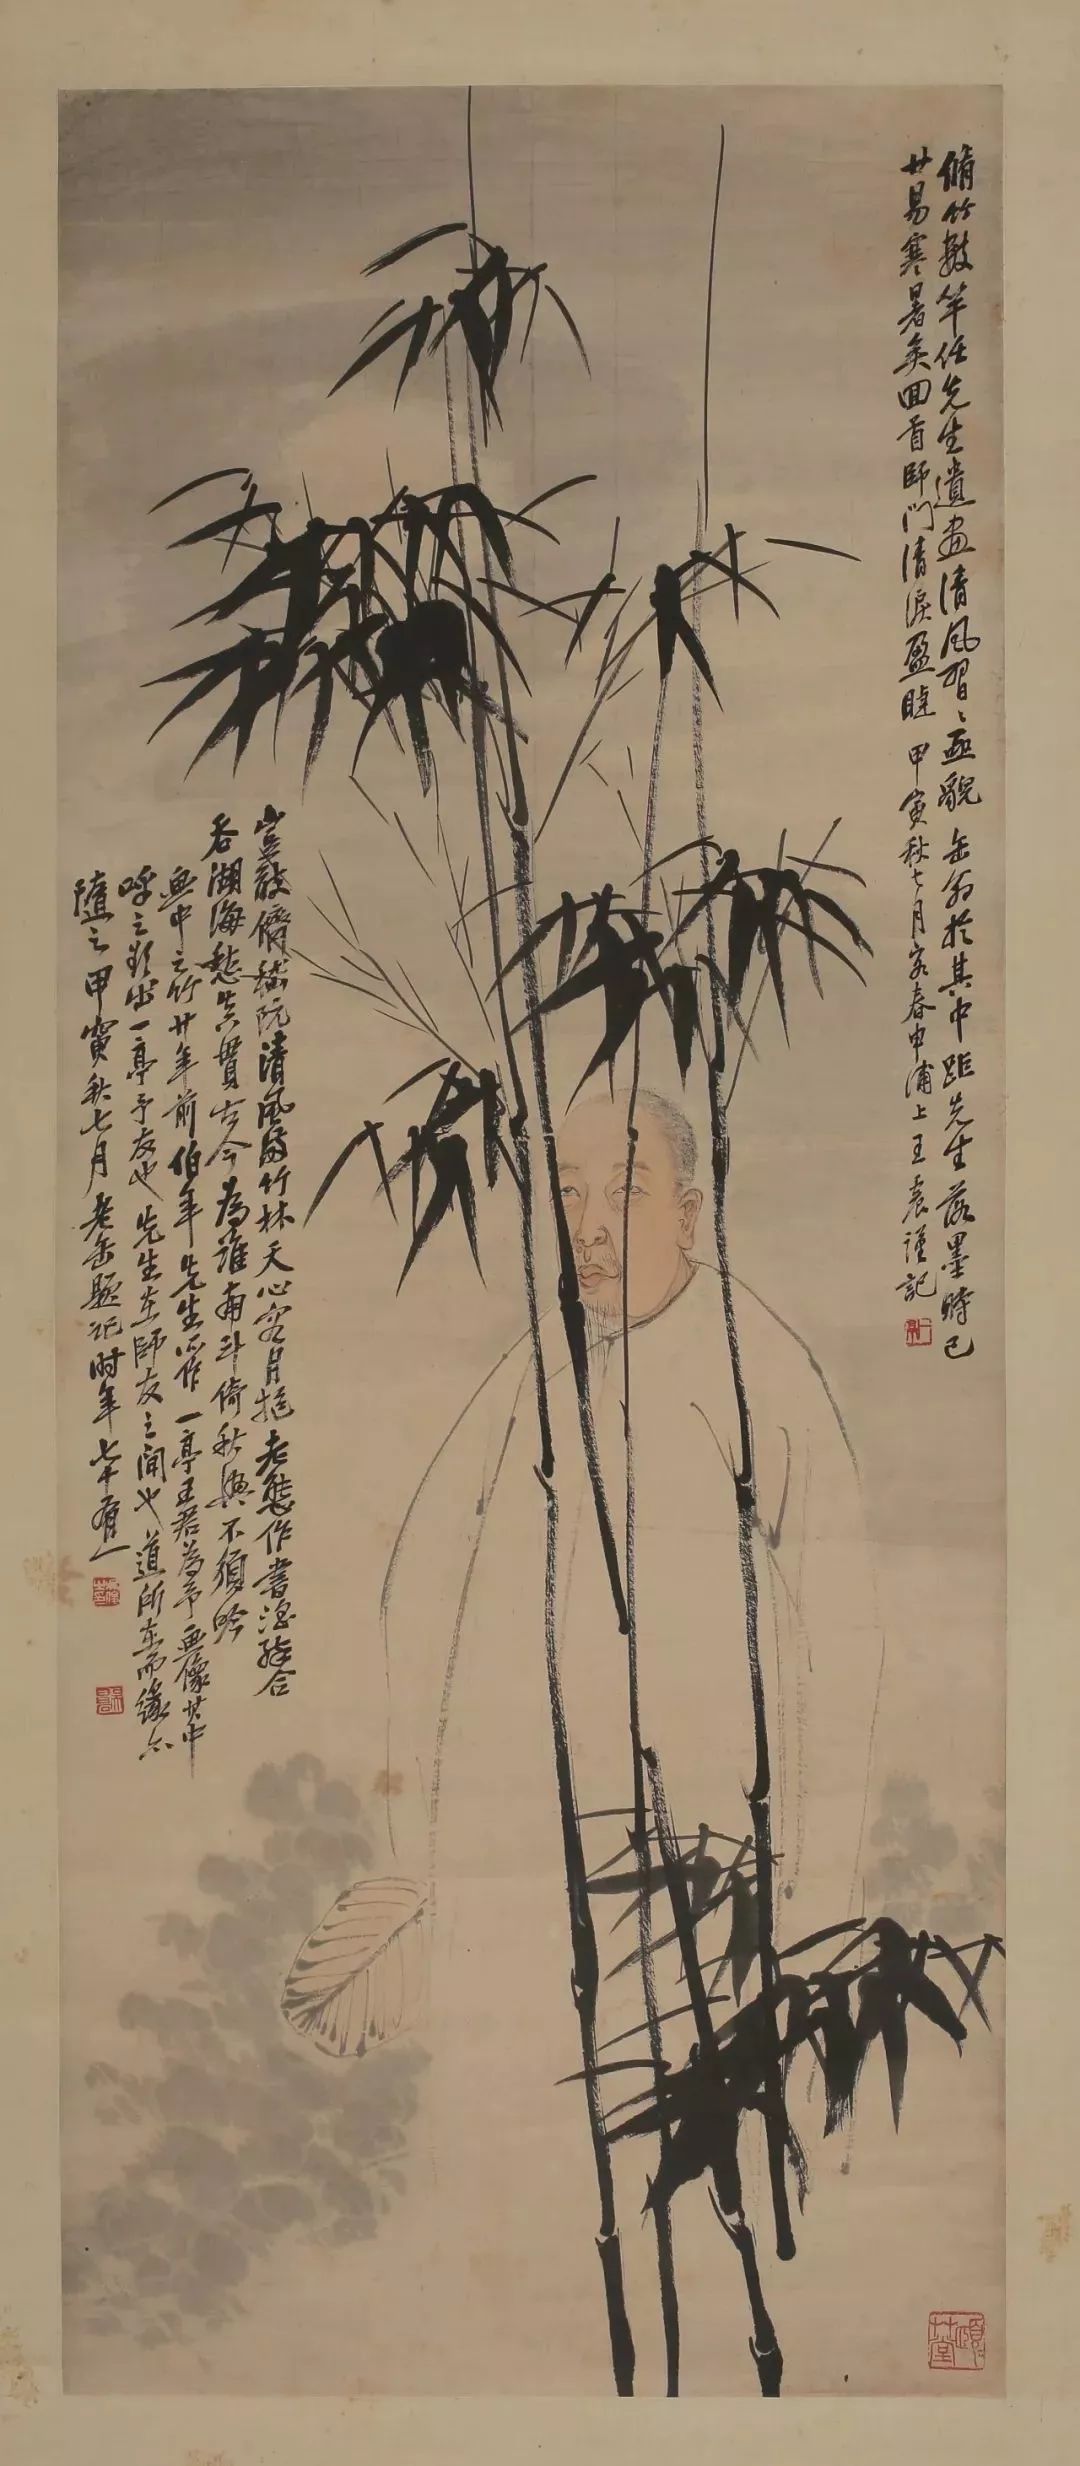 脩竹數竿任先生遺畫清風習〻亟貌缶翁於其中距先生落墨時已
廿易寒暑矣回首師門清淚盈睫甲寅秋七月客春申浦上王震謹記
豈敢儕嵇阮清風留竹林天心容月抱老態作書淫合
吞湖海愁真貫古今為誰南斗倚秋興不須吟
畫中之竹廿年前伯年先生所作一亭王君為予畫像其中
呼之欲出一亭予友也先生在師友之間也道所在而緣亦
隨之甲寅秋七月老缶題記時年七十有一